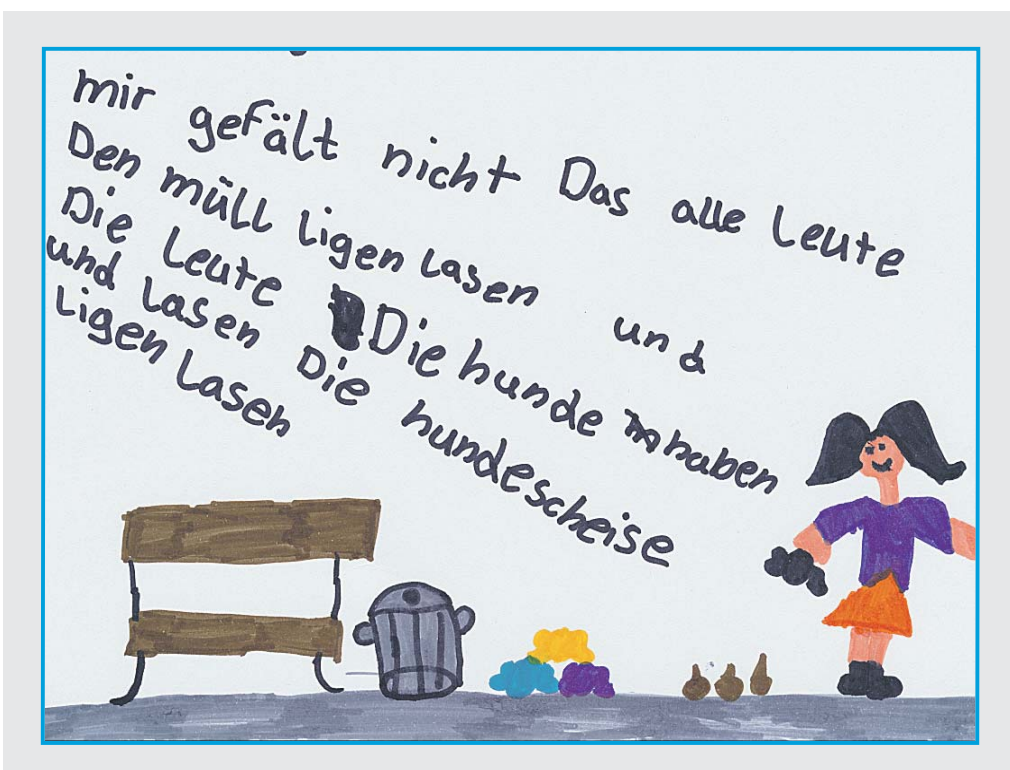 mir gefält nicht Das alle Leute
Den müll Ligen Lasen und
Die Leute Die hunde haben
und Lasen Die hundescheise
Ligen Lasen